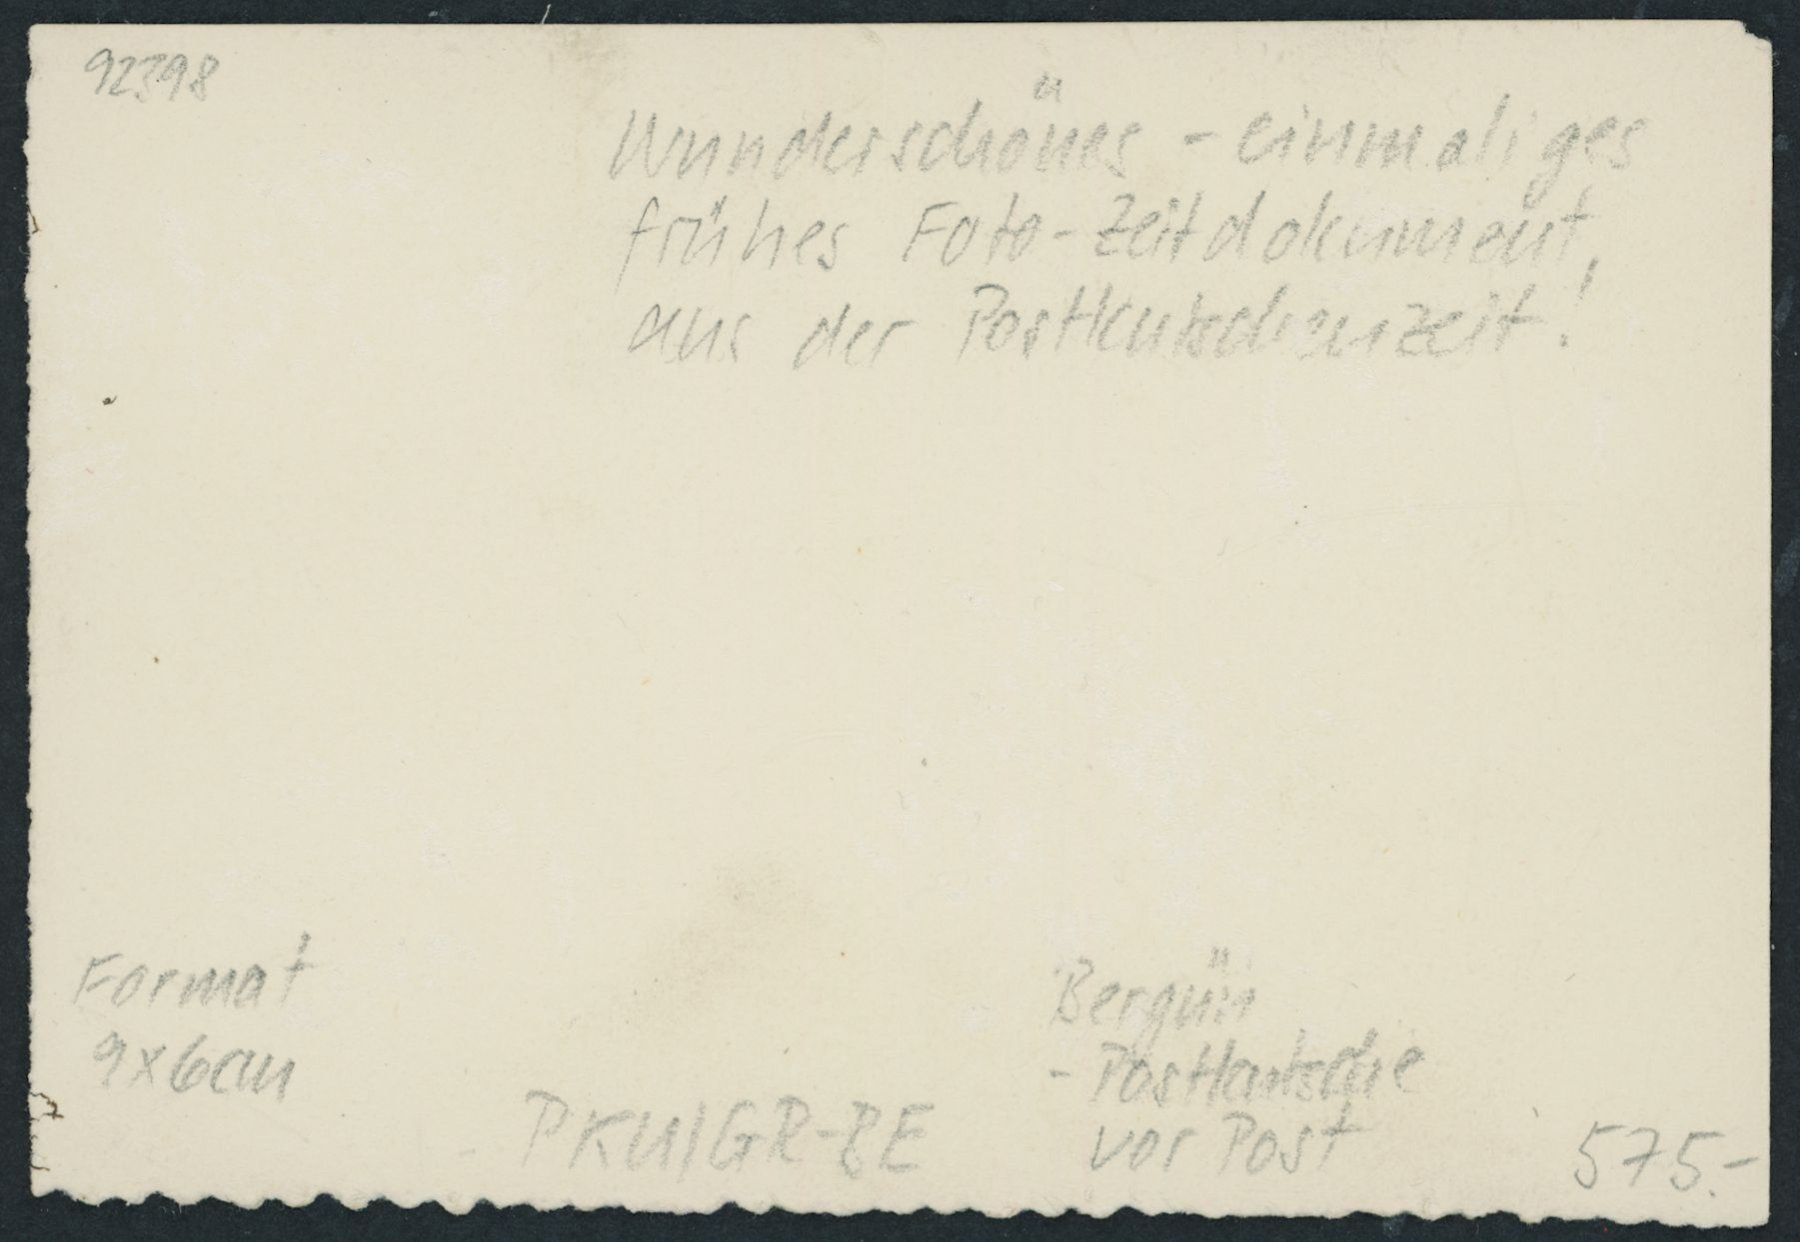 92398
Wunderschönes - einmaliges
frühes Foto-Zeitdokument,
aus der Postkutschenzeit!
Format
9x6cm
PKU/GR-BE
Bergün
- Postkutsche
vor Post
575.-